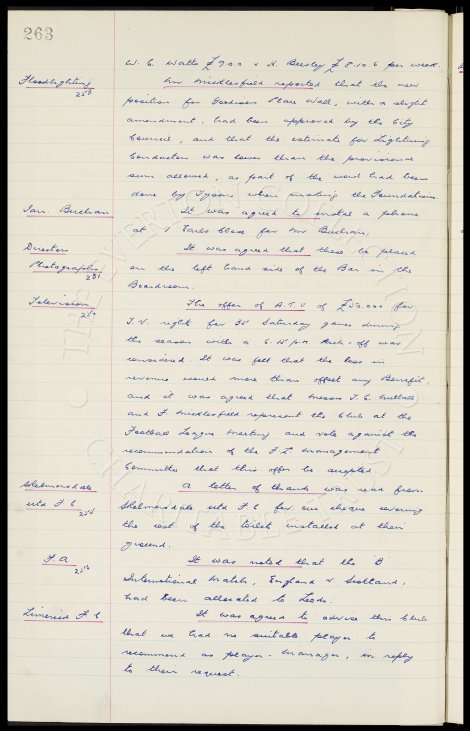 263
W. C. Watts £9.0.0 & H. Beesley £8.10.6 per week.
Floodlighting
Mr Micklesfield reported that the new
position for Goodison Place Wall, with a slight
amendment, had been approved by the City
Council, and that the estimate for Lightning
Conductors was lower than the provisional
sum allowed, as part of the work had been
done by Tysons when making the Foundations.
Ian. Buchan
It was agreed to instal a phone
at 1 Earls Close for Mr Buchan.
Directors
Photographs
It was agreed that these be placed
on the left hand side of the Bar in the
Boardroom.
Television
The offer of A.T.V of £50.000 for
T.V. rights for Saturday games during
the season with a 6.15 p.m. Kick-off was
considered. It was felt that the loss in
revenue would more than offset any Benefit,
and it was agreed that Messrs T. C. Nuttall
and F. Micklesfield represent the Club at the
Football League Meeting and vote against the
recommendation of the F.L. Management
Committee that this offer be accepted.
Skelmersdale
Utd F C
A letter of thanks was read from
Skelmersdale Utd F C for our cheque covering
the cost of the toilets installed at their
ground.
F.A
It was noted that the 'B'
International Match, England v Scotland,
had been allocated to Leeds.
Limerick F C
It was agreed to advise this Club
that we had no suitable player to
recommend as player-manager, in reply
to their request.
THE EVERTON COLLECTION
CHARITABLE TRUST